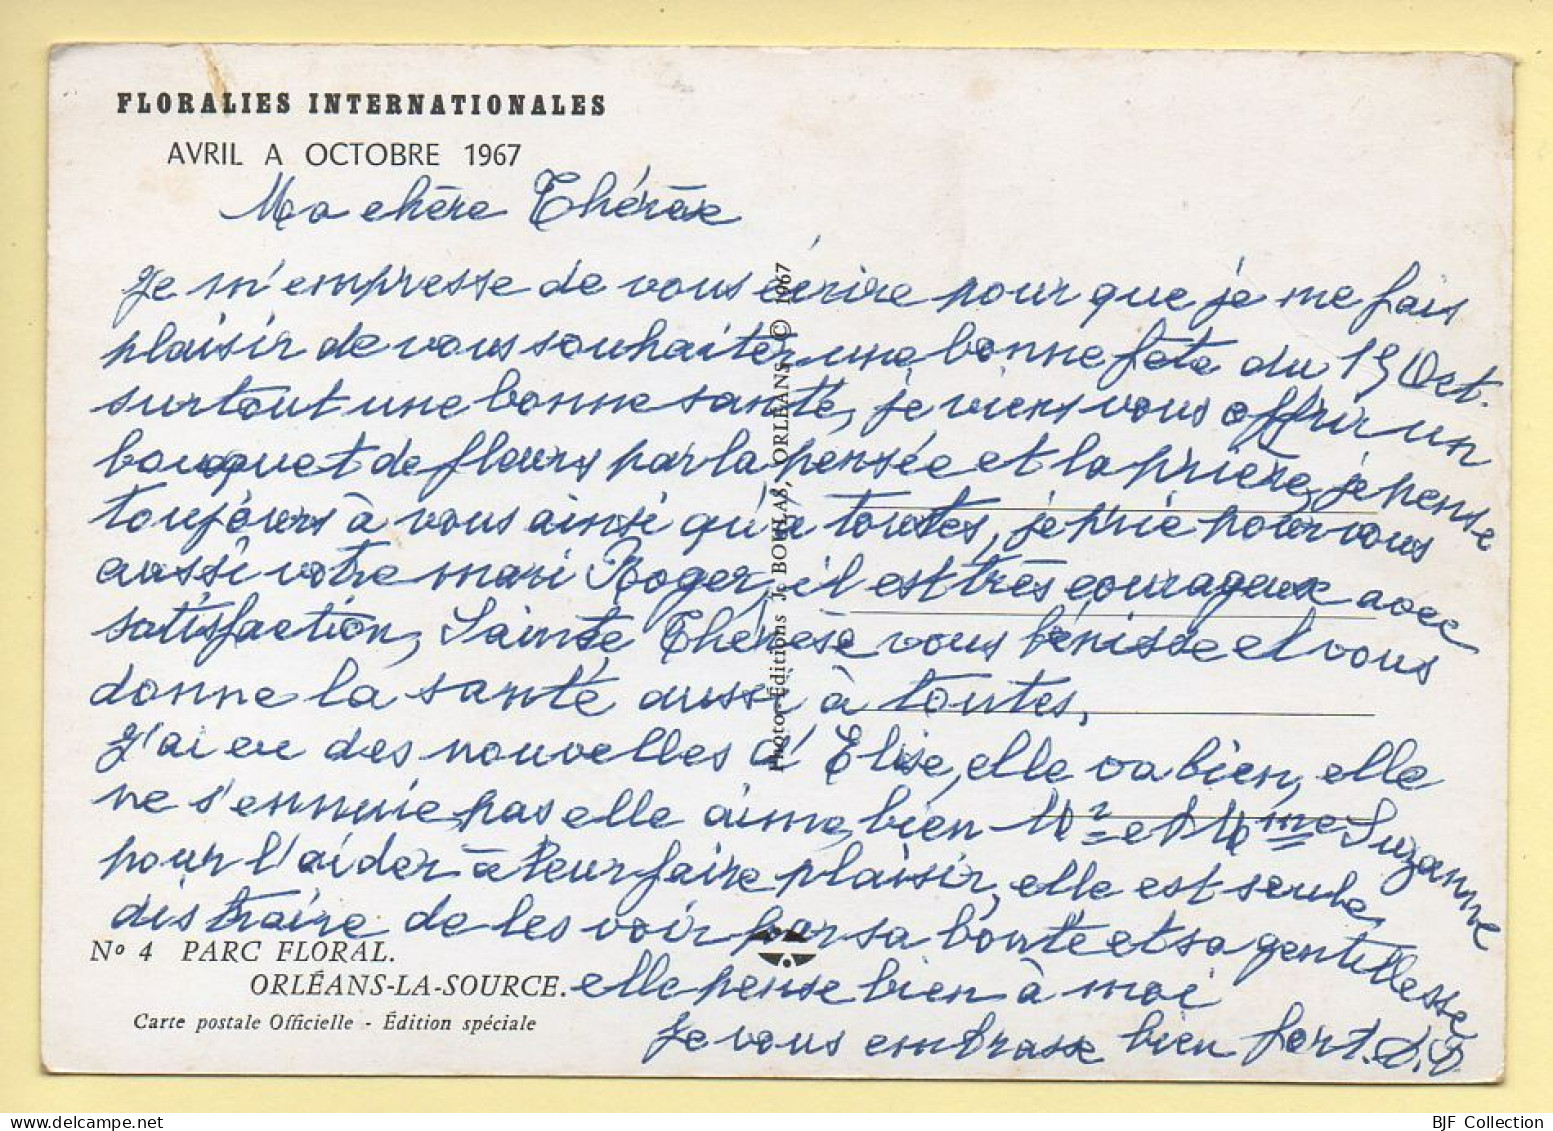 FLORALIES INTERNATIONALES
AVRIL A OCTOBRE 1967
Ma chère Thérèse
Je m'empresse de vous écrire pour que je me fais
plaisir de vous souhaiter une bonne fête du 15 Oct.
surtout une bonne santé, je viens vous offrir un
bouquet de fleurs par la pensée et la prière, je pense
toujours à vous ainsi qu'à toutes, je prie pour vous
aussi votre mari Roger, il est très courageux avec
satisfaction, Sainte Thérèse vous bénisse et vous
donne la santé aussi à toutes.
J'ai eu des nouvelles d'Elise, elle va bien, elle
ne s'ennuie pas elle aime bien Mr et Mme Suzanne
pour l'aider à leur faire plaisir, elle est seule,
distraire de les voir par sa bonté et sa gentillesse
elle pense bien à moi
Je vous embrasse bien fort. D.D
Photo-Éditions J. BOULAS, ORLÉANS © 1967
No 4 PARC FLORAL.
ORLÉANS-LA-SOURCE.
Carte postale Officielle - Édition spéciale
BJF Collection